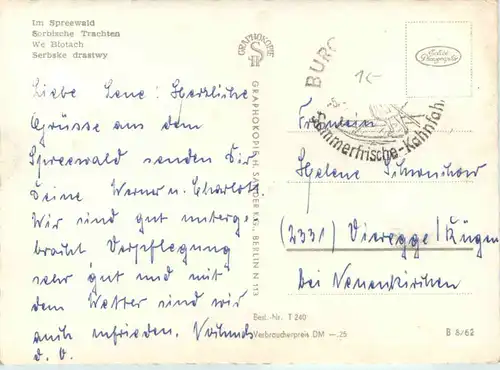 Im Spreewald
Sorbische Trachten
We Błotach
Serbske drastwy
Liebe Lene! Herzliche
Grüsse aus dem
Spreewald senden Dir
Deine Werner u. Charlott.
Wir sind gut unterge-
bracht Verpflegung
sehr gut und mit
dem Wetter sind wir
auch zufrieden.
d. O.
GRAPHOKOPIE
GRAPHOKOPIE H. SANDER KG., BERLIN N 113
BURG
Sommerfrische-Kahnfah.
1.-
Fräulein
Helene
(2331) Vieregge/Rügen
bei Neuenkirchen
Best.-Nr. T 240
Verbraucherpreis DM -.25
B 8/62